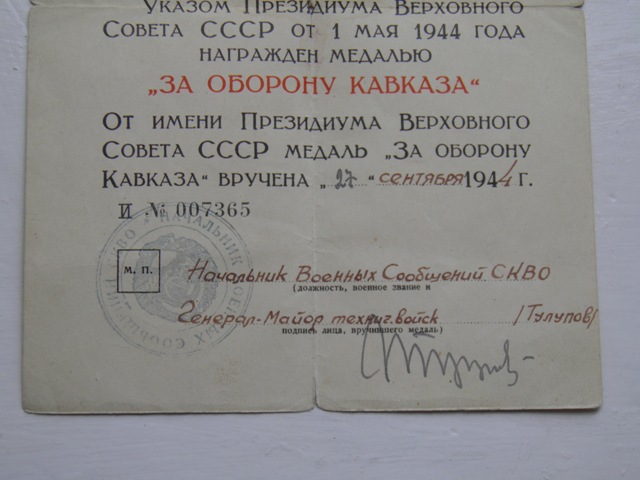 Указом Президиума Верховного
Совета СССР от 1 мая 1944 года
награжден медалью
„ЗА ОБОРОНУ КАВКАЗА“
От имени Президиума Верховного
Совета СССР медаль „За оборону
Кавказа“ вручена „27“ сентября 1944 г.
И № 007365
М. П.
Начальник Военных Сообщений СКВО
(должность, военное звание и
Генерал-Майор технич. войск /Тулупов/
подпись лица, вручившего медаль)